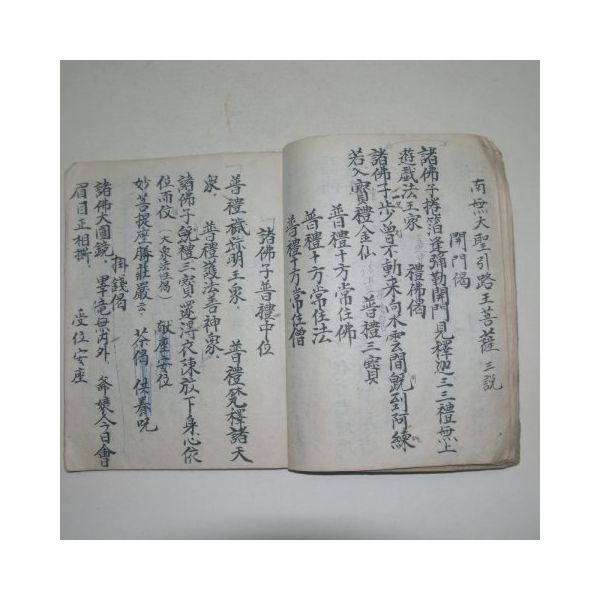 南無大聖引路王菩薩 三說
開門偈
諸佛子捲箔逢彌勒開門見釋迦三三禮無上
遊戱法王家 禮佛偈
諸佛子步曾不動来向水雲間旣到阿練
若入寶禮金仙 普禮三寶
普禮十方常住佛
普禮十方常住法
普禮十方常住僧
諸佛子普禮中位
普禮穢跡明王衆 普禮梵釋諸天
衆 普禮護法善神衆
諸佛子旣禮三寶還淨衣陳放下身心依
位而伩 (大衆法性偈) 献座安位
妙菩提座勝莊嚴云云 茶偈 供養呪
掛錢偈
諸佛大圓鏡 畢竟無內外 爺孃今日會
眉目正相撕 受位安座